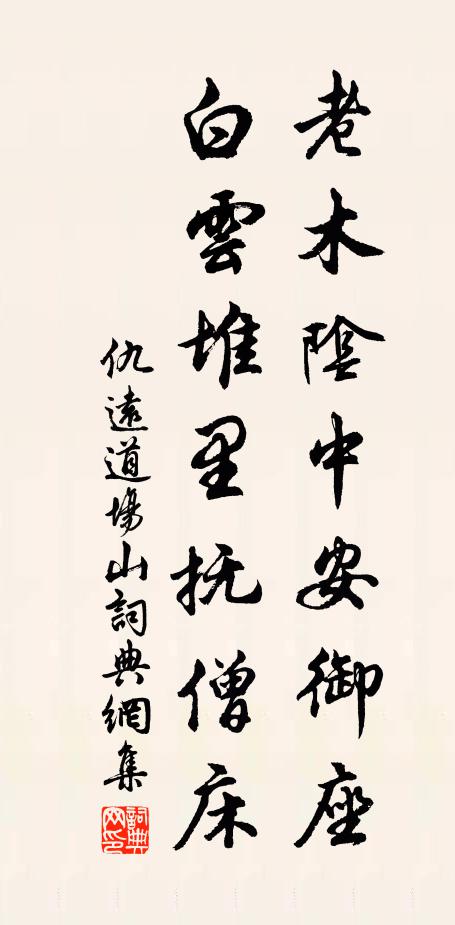 老木陰中安御座
白雲堆里抚僧床
仇遠道場山詞典網集
詞典網印